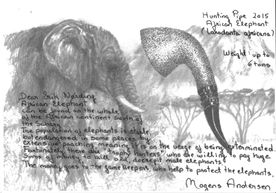 Hunting Pipe 2015
African Elephant
(Loxodonta africana)
Weight: up to
6 tons
Dear Erik Nørding
African Elephant
can be found on the whole
of the African continent South of
the Sahara.
The population of elephants is stable
but endangered in some places by
extensive poaching, meaning it is on the verge of being exterminated.
Fortunately there are "trophy hunters" who are willing to pay huge
Sums of money to kill old, decrepit male elephants
The money goes to the Game keepers, who help to protect the elephants.
Mogens Andersen